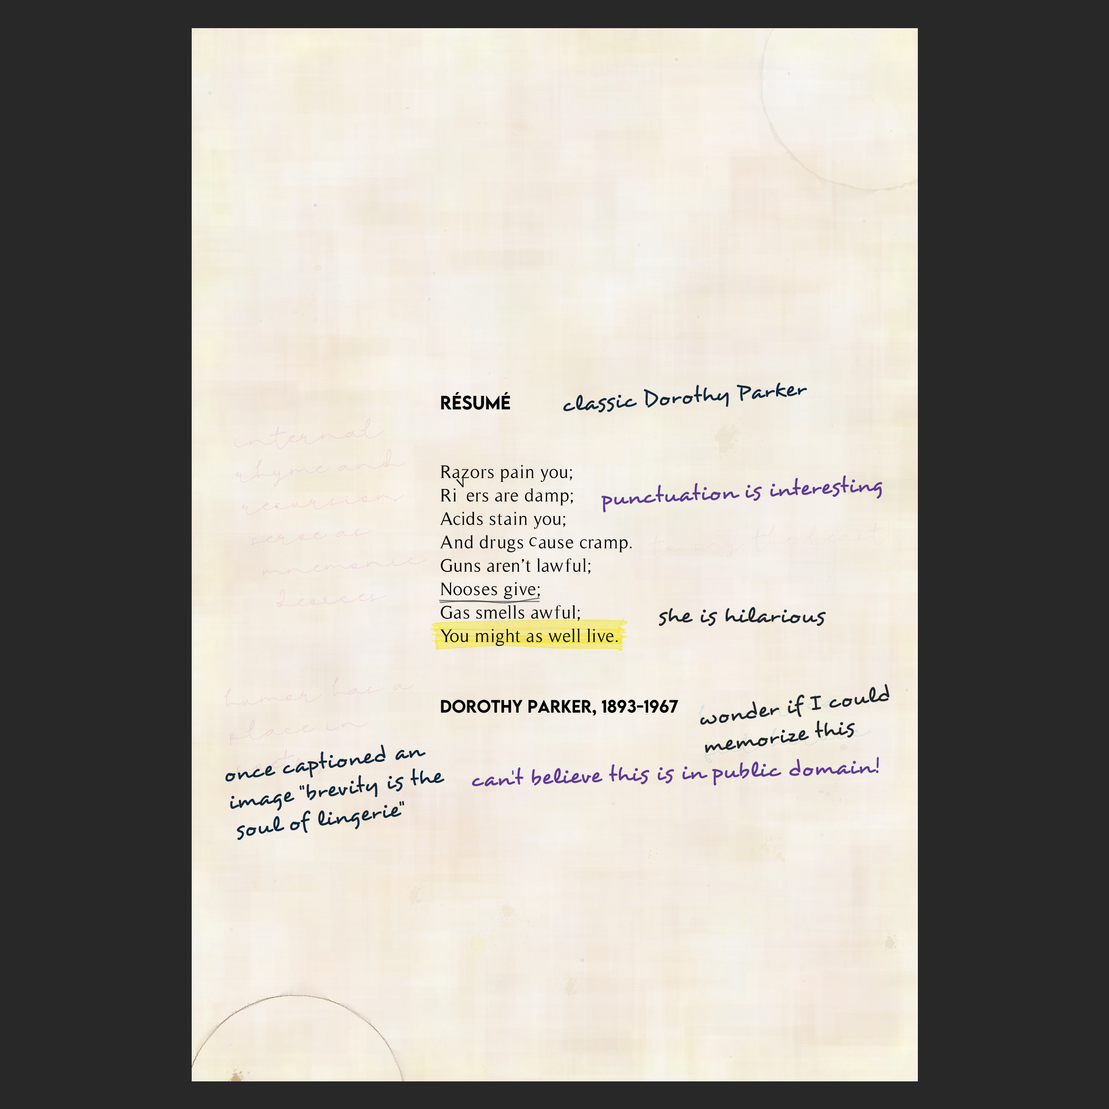 RÉSUMÉ
classic Dorothy Parker
internal
rhyme and
recursion
serve as
mnemonic
devices
Razors pain you;
Rivers are damp;
punctuation is interesting
Acids stain you;
And drugs cause cramp.
Guns aren’t lawful;
Nooses give;
Gas smells awful;
she is hilarious
You might as well live.
humor has a
place in
DOROTHY PARKER, 1893-1967
wonder if I could
memorize this
once captioned an
image "brevity is the
soul of lingerie"
can't believe this is in public domain!